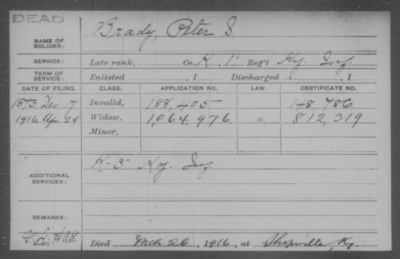 DEAD
NAME OF SOLDIER: Brady, Peter S
SERVICE: Late rank, Co. K, 1" Reg't Ky. Inf.
TERM OF SERVICE: Enlisted , 1 Discharged , 1
DATE OF FILING. CLASS. APPLICATION NO. LAW. CERTIFICATE NO.
1873, Dec. 17, Invalid, 188,405 148,786
1916 Apr. 24 Widow, 1,064,976 812,319
Minor,
ADDITIONAL SERVICES: K-3" Ky. Inf.
REMARKS:
Died Mch 26, 1916, at Shopville, Ky.